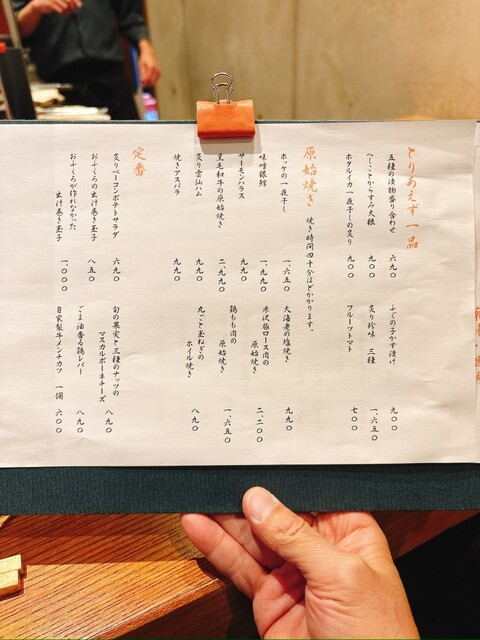 とりあえず一品
五種の漬物盛り合わせ 六九〇
へしことからすみ大根 九〇〇
ホタルイカ一夜干しの炙り 九〇〇
ふぐの子かす漬け 九〇〇
炙り珍味 三種 一、六五〇
フルーツトマト 七〇〇
原始焼き 焼き時間四十分ほどかかります。
ホッケの一夜干し 一、六五〇
味噌銀鱈 一、九九〇
サーモンハラス 九九〇
黒毛和牛の原始焼き 二、九九〇
炙り雲仙ハム 九九〇
焼きアスパラ 九九〇
大海老の塩焼き 九九〇
米沢豚ロース肉の
原始焼き 二、二〇〇
鶏もも肉の
原始焼き 一、六五〇
丸ごと玉ねぎの
ホイル焼き 八九〇
定番
炙りベーコンポテトサラダ 六九〇
おふくろの出汁巻き玉子 八五〇
おふくろが作れなかった
出汁巻き玉子 一、〇〇〇
旬の果実と三種のナッツの
マスカルポーネチーズ 八九〇
ごま油香る鶏レバー 八九〇
自家製牛メンチカツ 一個 六〇〇